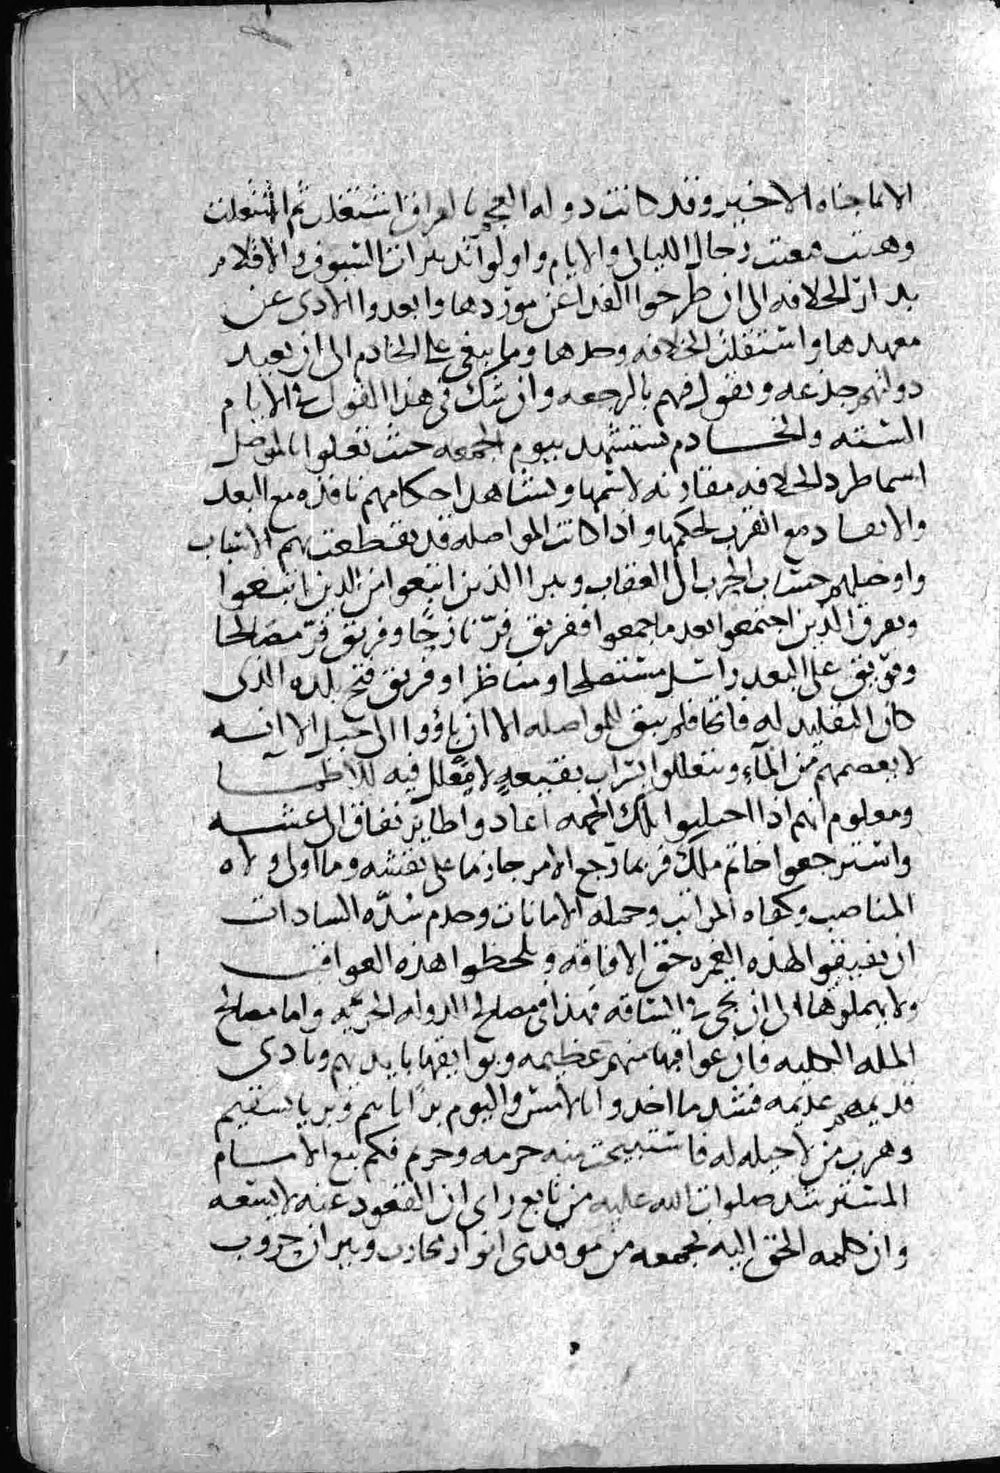 الا بما جناه الاخير وقد كانت دوله العجم بالعراق اشتغلت ثم اشتعلت
وهبت همعت رجال الليالى والايام واولوا تدبيرات السيوف والاقلام
بدار الخلافه الى ان طرحوا القذا عن موردها وابعدوا الاذى عن
معهدها واستقلت الخلافه وحدها وما يبغى على الخادم الى ان يعيد
دولتهم جذعه ويقول فيهم بالرجعه وان شك فى هذا القول فى الايام
السته والخادم يستشهد بيوم الجمعه حيث تعلوا بالموصل
اسما طرد الخلافه مقارنه لاسمها ويشاهد احكامهم نافذه مع البعد
والابعاد مع القرب لحكمها واذا كانت المواصله قد تقطعت بهم الاسباب
واوصلهم حساب الحرب الى العقاب وتبرا الذين اتبعوا من الذين اتبعوا
وتفرق الذين اجتمعوا بعد ما جمعوا ففريق فرّ نازحًا وفريق قرّ مصالحا
وفريق على البعد راسل مستصلحا ومناظرا وفريق فتح بلده الذى
كان المقليد له فاتحا فلم يبق للمواصله الا ان ياووا الى جبل الا انه
لا يعصمهم من المآء ويتعللوا بشراب بقيعهٍ لا مُعلّل فيه للاظمآ
ومعلوم انهم اذا اجلبوا بتلك الجهه اعادوا طاير نفاق الى عشه
واسترجعوا خاتم ملك فربما رجع الامر جازما على نفشه وما اولى ولاه
المناصب وكفاه المراتب وحمله الامانات وخدم سُدّه السادات
ان يفيقوا لهذه الغمره حق الافاقه ويلحظوا هذه العواقب
ولا يهملوها الى ان تجى فى الساقه فهذا فى مصالح الدوله الجزيّه واما مصالح
المله الكليه فان عواقبها منهم عظيمه وبوايقها باديه بهم وبادى
قديمهم عديمه فنشد ما اخذوا بالامس واليوم برًا باثم وبريا بسقيم
وهرب من لا حيله له فاستبيحت منه حرمه وحريم فكم تبع الامام
المسترشد صلوات الله عليه من تابع راى ان القعود عنه لا يسعه
وان كلمه الحق اليه تجمعه من موقدى انوار محارب ونيران حروب